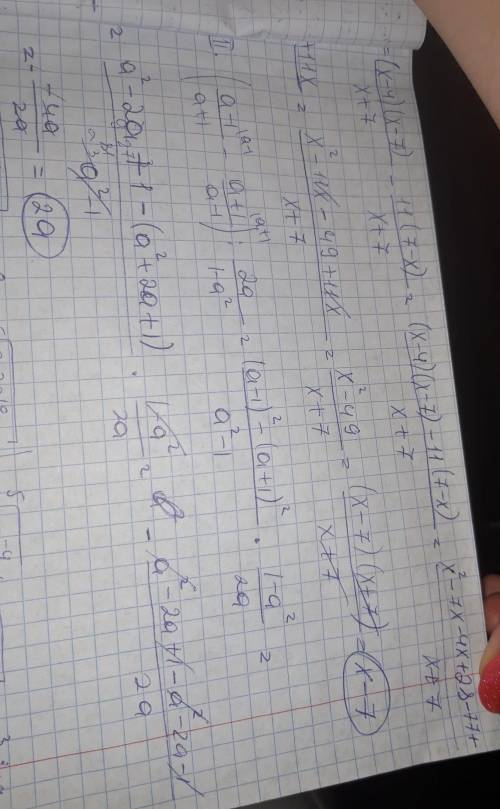 = (x-4)(x-7)/(x+7) - 11(7-x)/(x+7) = ((x-4)(x-7) - 11(7-x))/(x+7) = (x² - 7x - 4x + 28 - 77 +
+11x = (x² - 11x - 49 + 11x)/(x+7) = (x² - 49)/(x+7) = (x-7)(x+7)/(x+7) = x-7
II. (a-1/a+1 - a+1/a-1) : 2a/1-a² = ((a-1)² - (a+1)²)/(a²-1) · 1-a²/2a =
= (a² - 2a + 1 - (a² + 2a + 1))/(a²-1) · 1-a²/2a = - (a² - 2a + 1 - a² - 2a - 1)/2a
= - -4a/2a = 2a